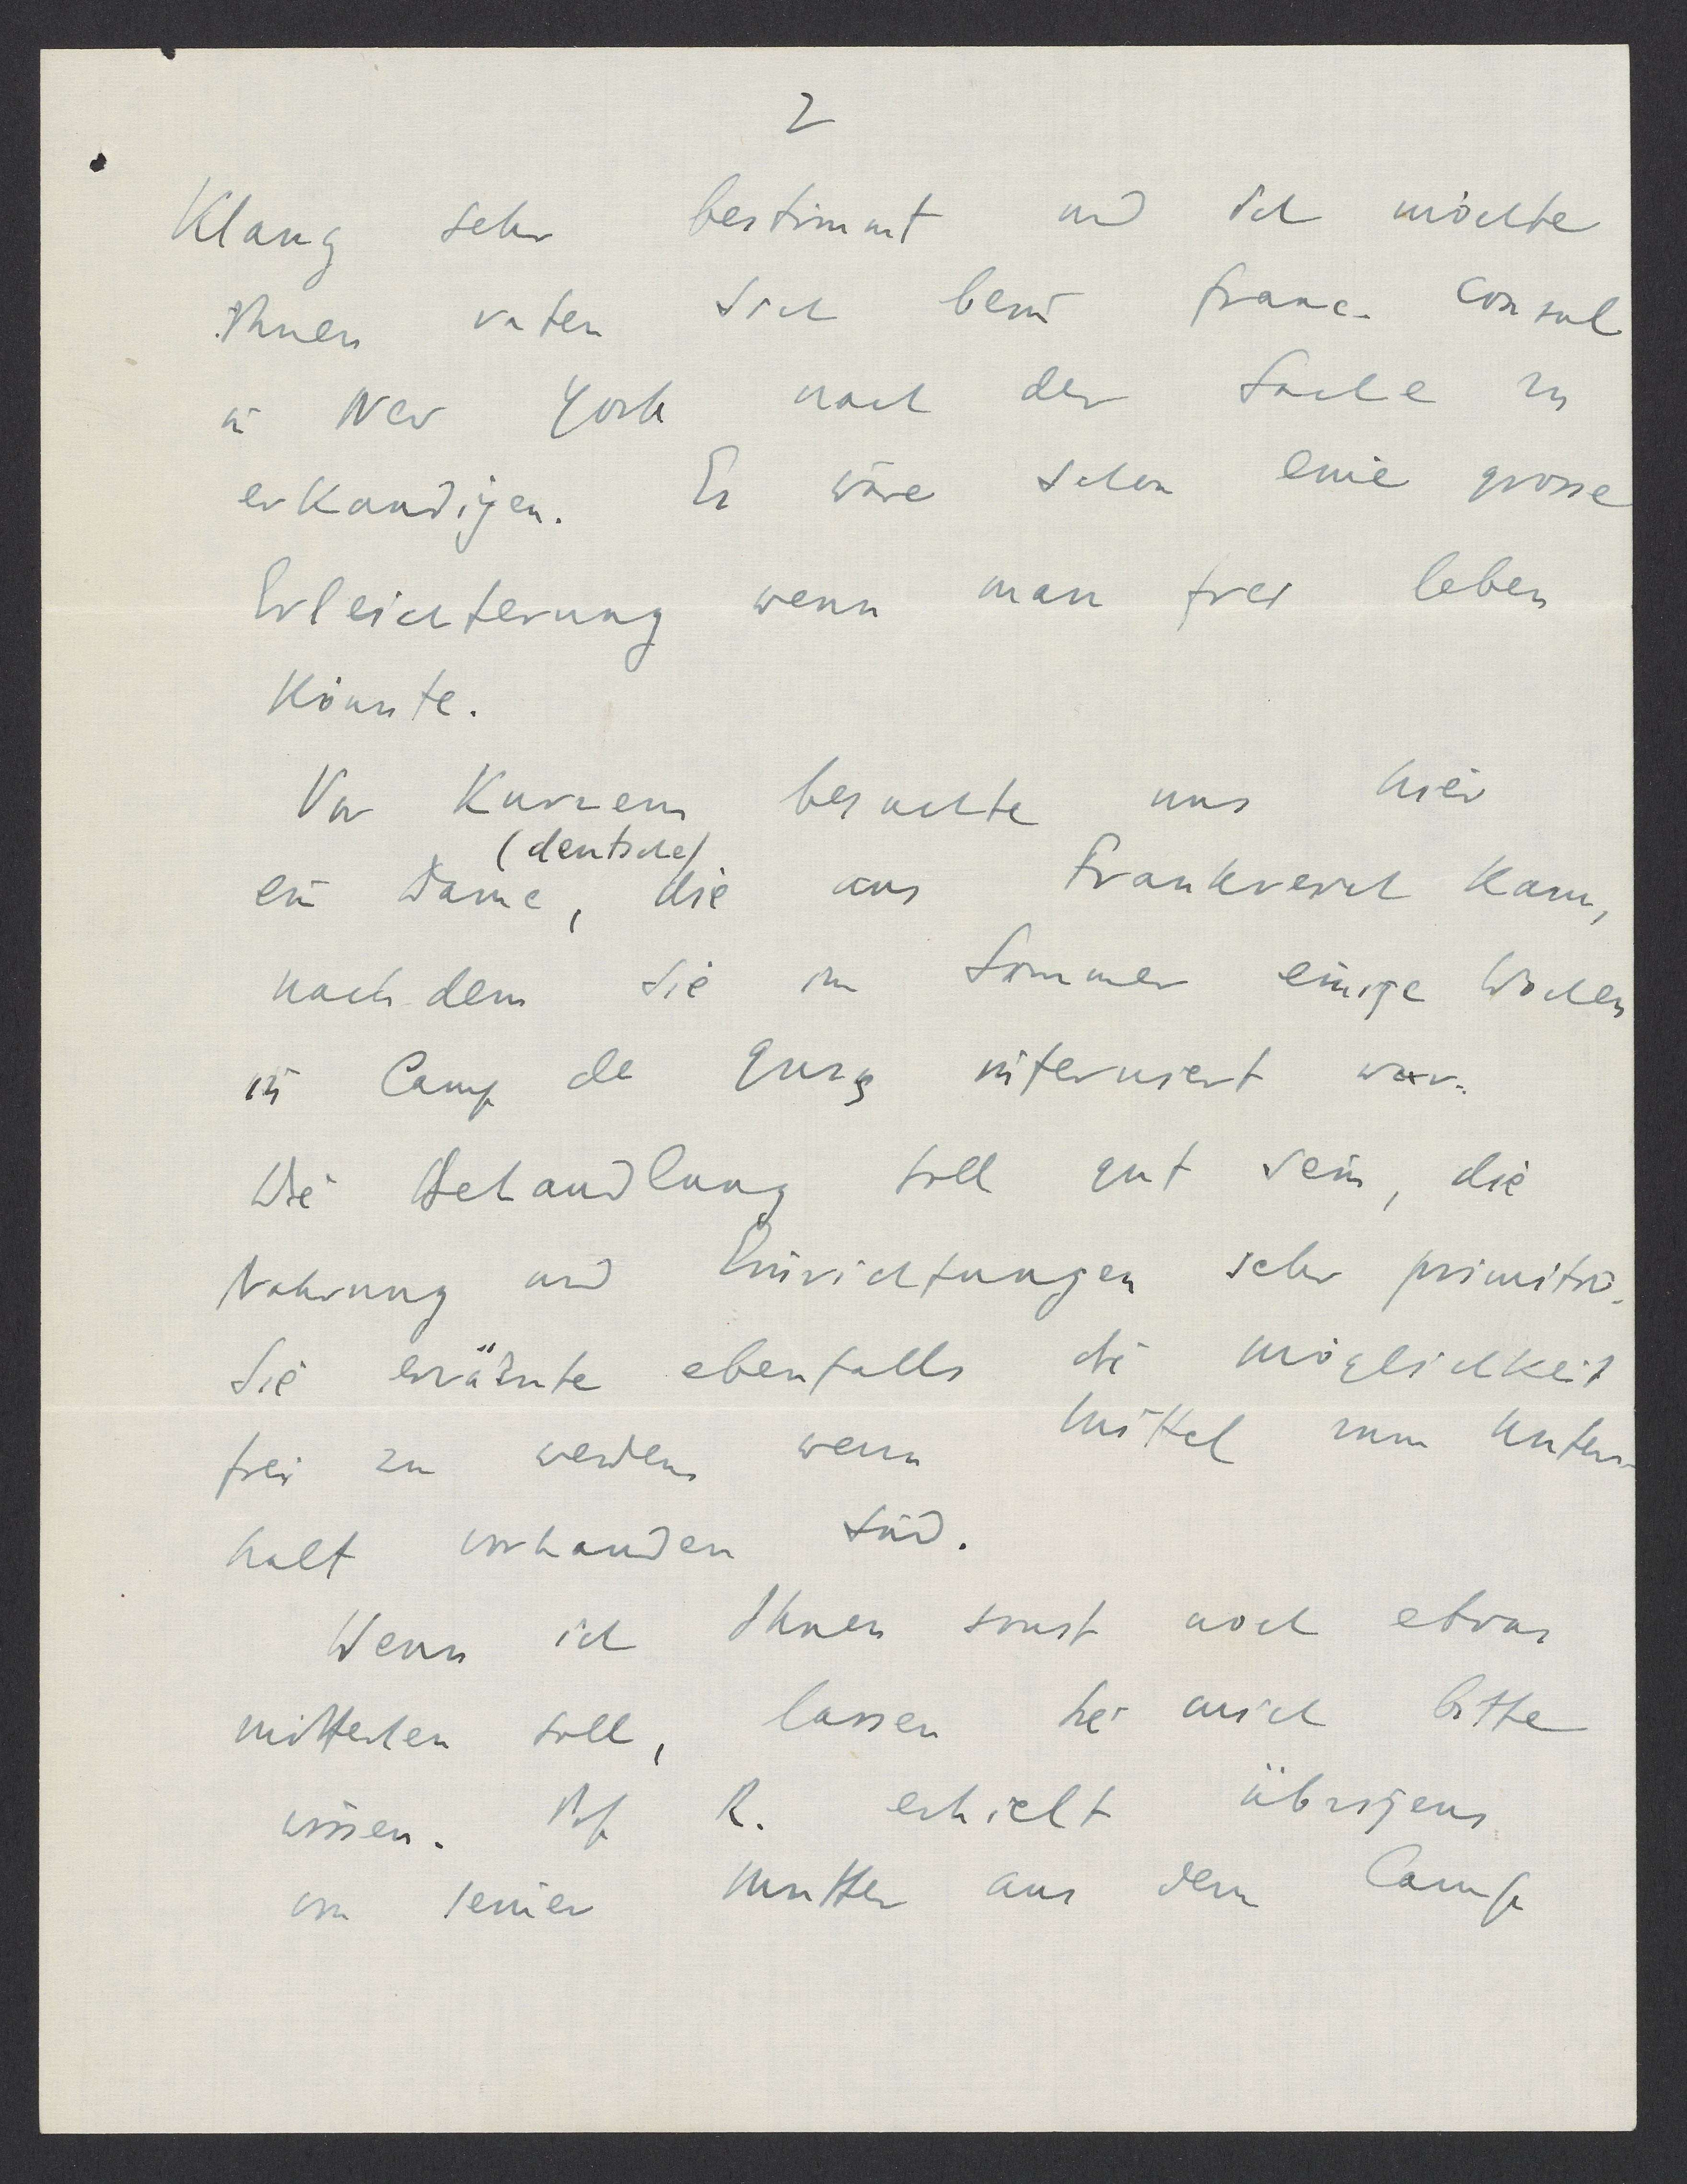 2
Klang sehr bestimmt und ich möchte
Ihnen raten sich beim franc. Consul
in New York nach der Sache zu
erkundigen. Es wäre schon eine grosse
Erleichterung wenn man frei leben
könnte.
Vor Kurzem besuchte uns hier
(deutsche)
ein Dame, die aus Frankreich kam,
nachdem sie im Sommer einige Wochen
im Camp de Gurs interniert war.
Die Behandlung soll gut sein, die
Nahrung und Einrichtungen sehr primitiv.
Sie erwähnte ebenfalls die Möglichkeit
frei zu werden wenn Mittel zum Unter-
halt vorhanden sind.
Wenn ich Ihnen sonst noch etwas
mitteilen soll, lassen Sie mich bitte
wissen. Prof R. erhielt übrigens
von seiner Mutter aus dem Camp